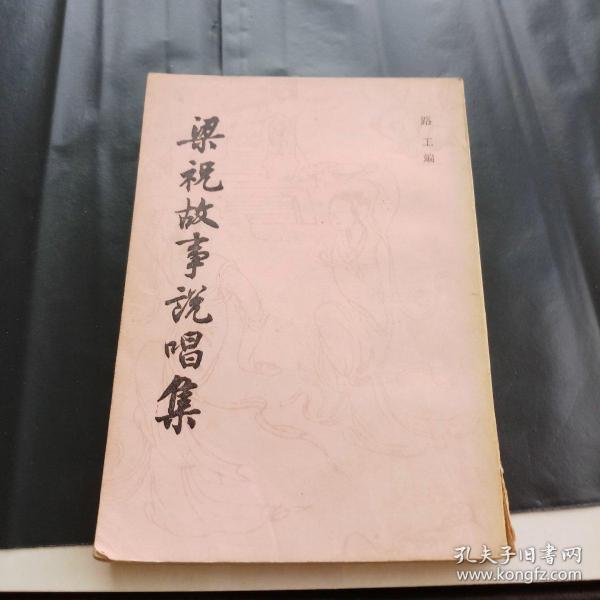 路工编
梁祝故事説唱集
孔夫子旧書网
www.kongfz.com